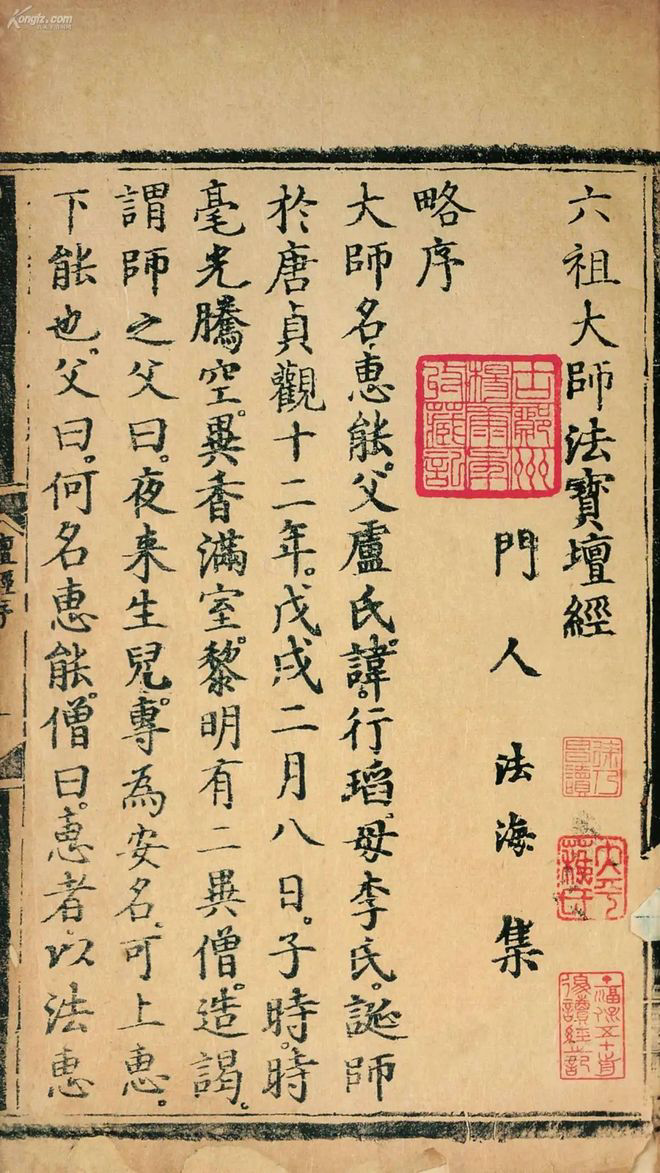 六祖大師法寶壇經
門人 法海 集
略序
大師名惠能。父盧氏。諱。行瑫。母李氏。誕師
於唐貞觀十二年。戊戌二月八日。子時。時
毫光騰空。異香滿室。黎明有二異僧。造謁。
謂師之父曰。夜来生兒。專為安名。可上惠。
下能也。父曰。何名惠能。僧曰。惠者以法惠
壇經序
Kongfz.com